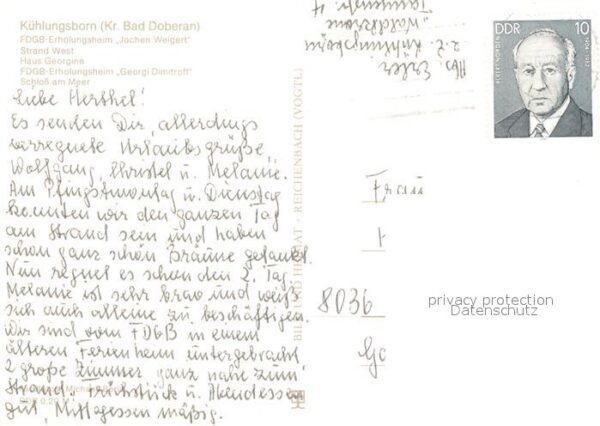 Kühlungsborn (Kr. Bad Doberan)
FDGB-Erholungsheim „Jochen Weigert"
Strand West
Haus Georgina
FDGB-Erholungsheim „Georgi Dimitroff"
Schloß am Meer
Liebe Herthel!
Es senden Dir, allerdings
verregnete Urlaubsgrüße
Wolfgang, Christel u. Melanie.
Am Pfingstmontag u. Dienstag
konnten wir den ganzen Tag
am Strand sein und haben
schon ganz schön Bräune getankt.
Nun regnet es schon den 2. Tag.
Melanie ist sehr brav und weiß
sich auch alleine zu beschäftigen.
Wir sind vom FDGB in einem
älteren Ferienheim untergebracht
2 große Zimmer ganz nahe zum
Strand. Frühstück u. Abendessen
gut, Mittagessen mäßig.
BILD UND HEIMAT · REICHENBACH (VOGTL)
Abs. Erler
z.Z. Kühlungsborn
„Waldkrone"
DDR 10
Frau
8036
privacy protection
Datenschutz